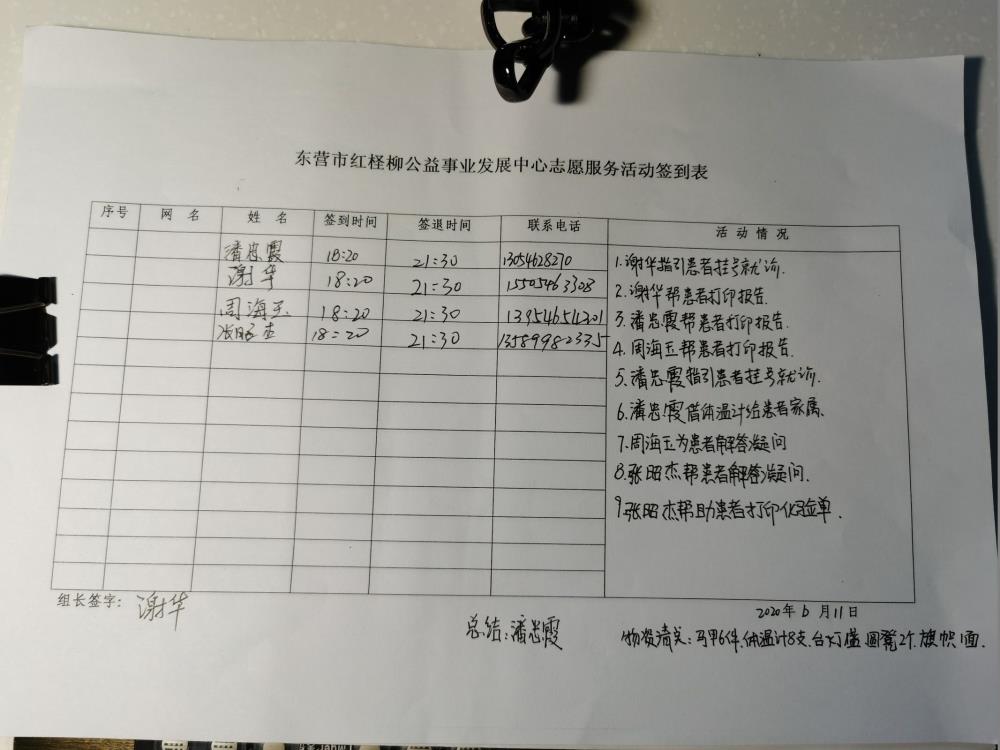 东营市红柽柳公益事业发展中心志愿服务活动签到表
序号 网 名 姓 名 签到时间 签退时间 联系电话 活 动 情 况
潘忠霞 18:20 21:30 13054628270
谢华 18:20 21:30 15505463308
周海玉 18:20 21:30 13954654301
张昭杰 18:20 21:30 13589982335
1.谢华指引患者挂号就诊.
2.谢华帮患者打印报告.
3.潘忠霞帮患者打印报告.
4.周海玉帮患者打印报告.
5.潘忠霞指引患者挂号就诊.
6.潘忠霞借体温计给患者家属.
7.周海玉为患者解答疑问
8.张昭杰帮患者解答疑问.
9.张昭杰帮助患者打印化验单.
组长签字: 谢华
2020年6月11日
总结:潘忠霞
物资清点:马甲6件.体温计8支.台灯1盏.圆凳2个.旗帜1面.